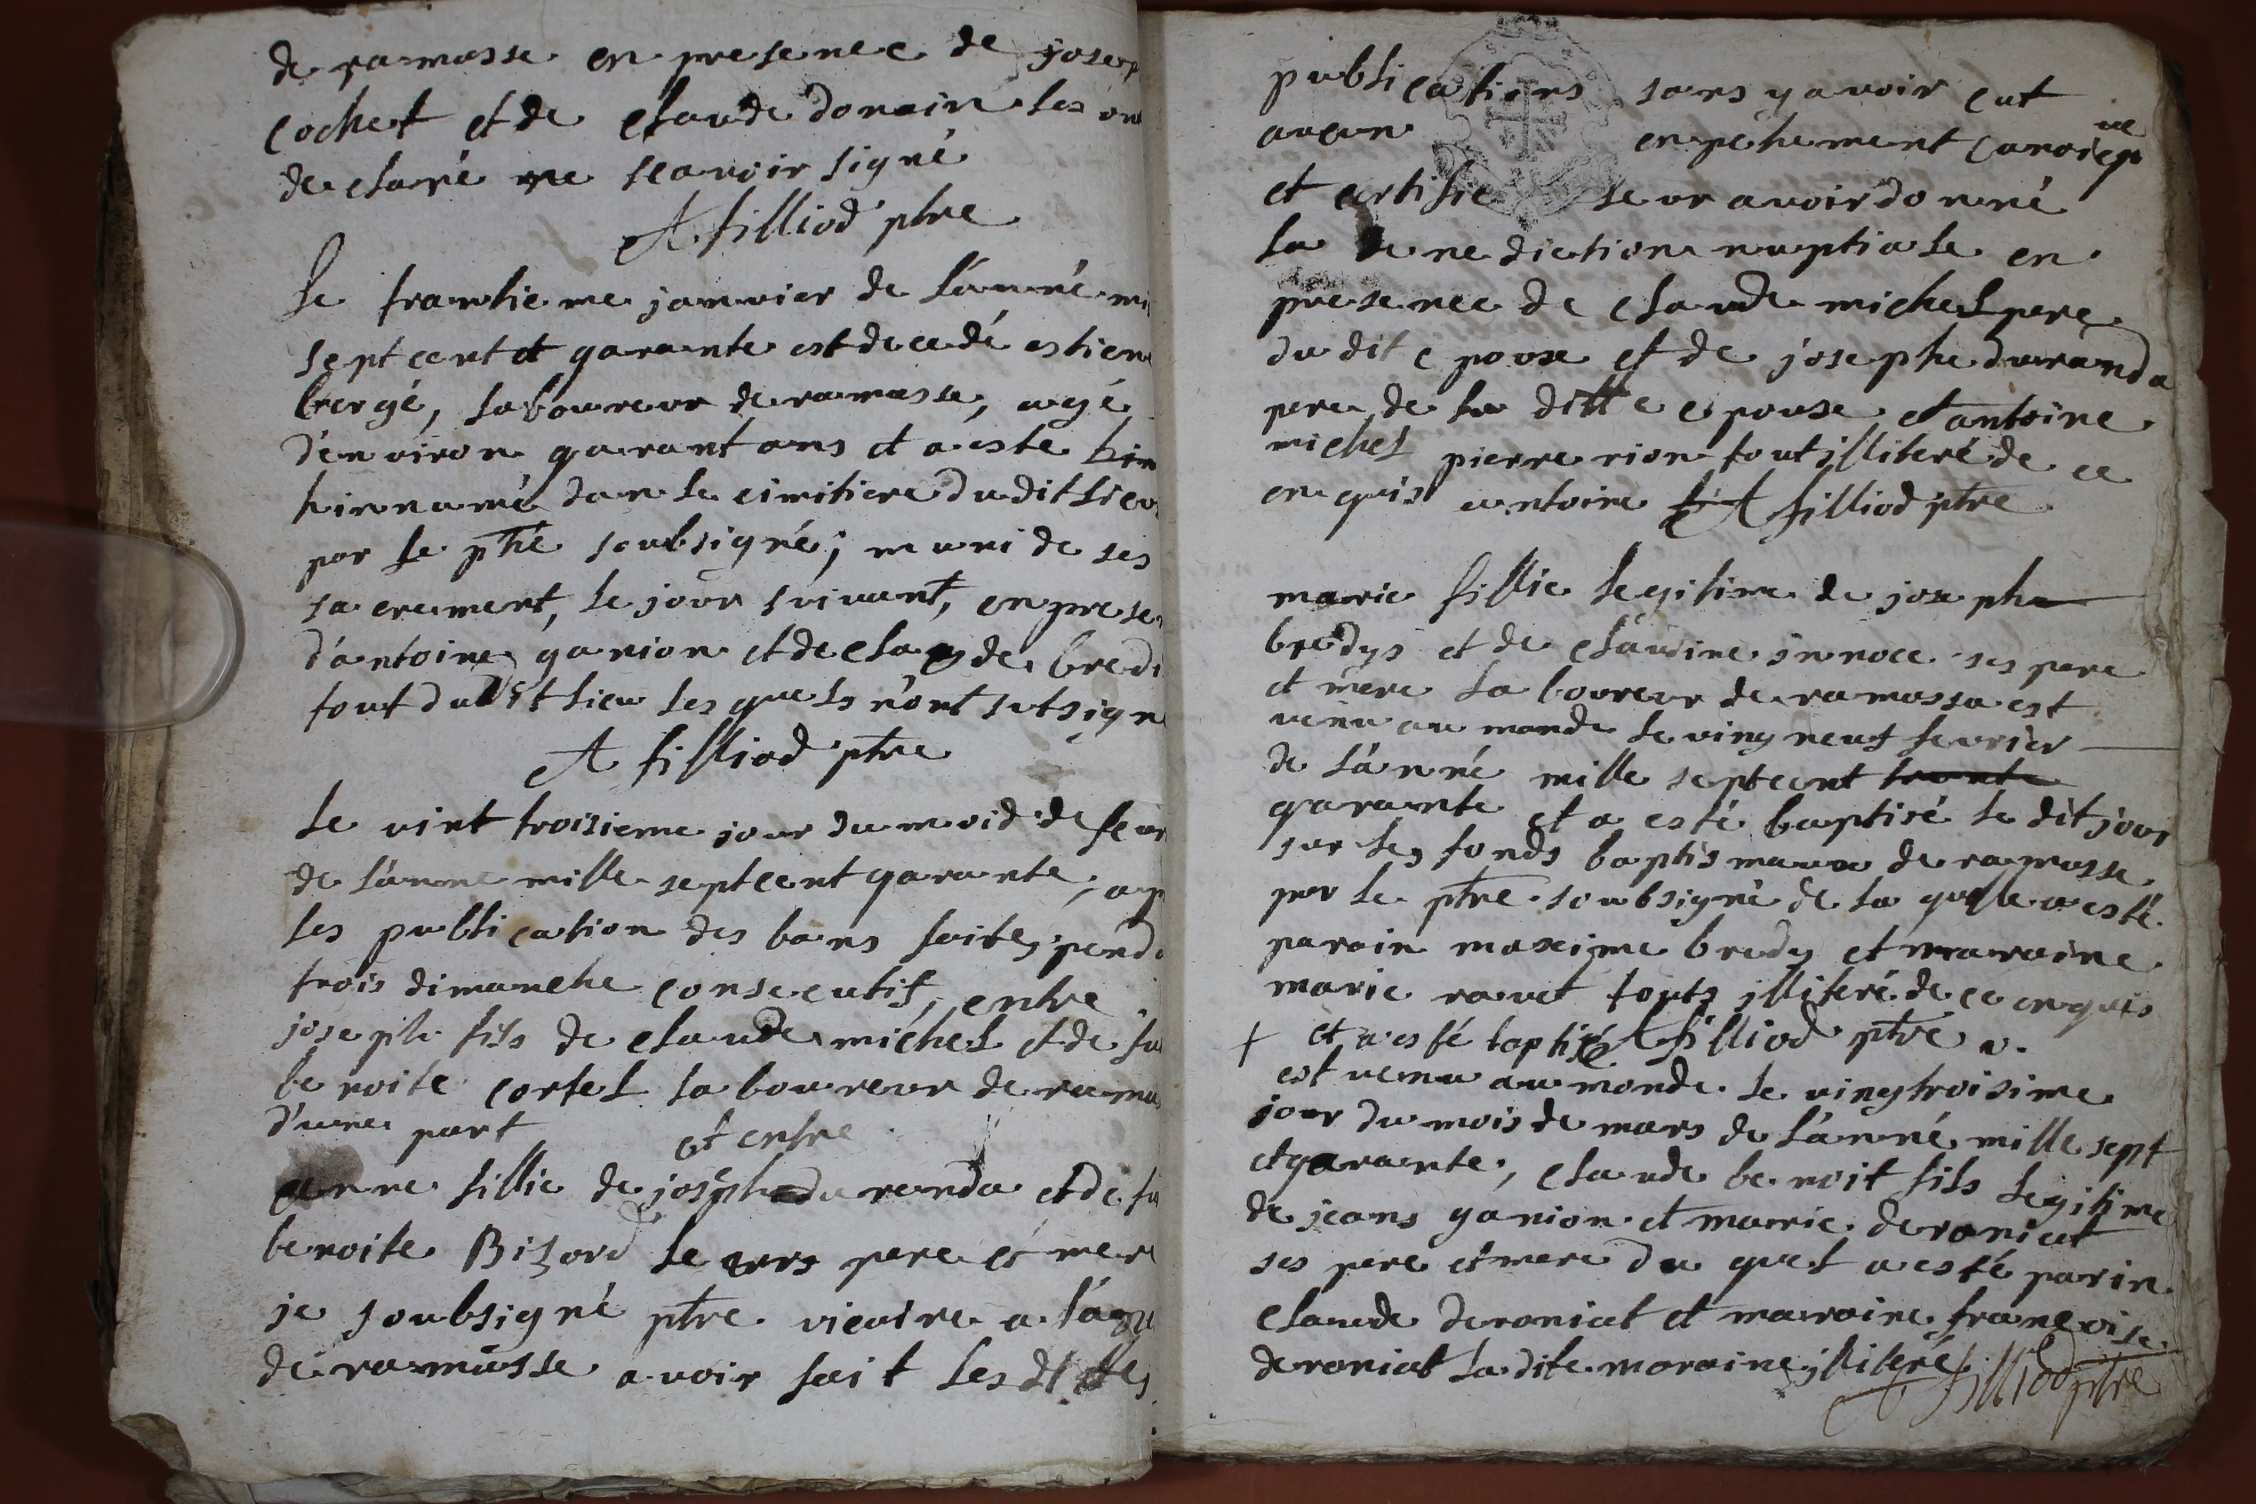 de ramasse en presence de josep
cochet et de claude donain les on
de claré ne scavoir signé
A filliod ptre
le trantieme janvier de l'anné mi
sept cent et qarante est decedé estien
bergé, laboureur de ramasse, agé
d'environ qarant ans et a este hin
hinnumé dan le cimitiere du dit lieu
par le ptre soubsigné, muni de ses
sacrement, le jour suivant, en prese
d'antoine ganion et de claude bredi
tout dudit lieu les quels n'ont sut sign
A filliod ptre
le vint troisieme jour du mois de fevr
de l'anne mille septcent qarante, ap
les publication des bans faites penda
trois dimanche consecutif, entre
joseph fils de claude michel et de fu
benoite cortel laboureur de ramas
d'une part et entre
anne fillie de joseph duranda et de fu
benoite Bizord le urs pere et mer
je soubsigné ptre vicaire a l'agu
de ramasse avoir fait les dittes
publications sans y avoir eut
aucun enpehement canoique
et certifie leur avoir donné
la benediction nuptiale en
presence de claude michel pere
du dit epoux et de josephe duranda
pere de la ditte epouse et antoine
michel pierre rion tout illiteré de ce
enquis antoine A filliod ptre
marie fillie legitime de josephe
bredys et de claudine innoce ses pere
et mere laboureur de ramassa est
venu au monde le ving neuf fevrier
de l'anné mille septcent trante
qarante et a esté baptisé le dit jour
sur les fonds baptismaux de ramasse
par le ptre soubsigné de la quelle a esté
parain maxime bredy et maraine
marie ravet touts illiteré de ce enquis
+ et a esté baptisé A filliod ptre v.
est venu au monde le vingtroisime
jour du mois de mars de l'anné mille sept
et qarante, claude benoit fils legitime
de jeans ganion et marie deroniat
ses pere et mere du quel a esté parin
claude deroniat et maraine francoise
deroniat la dite maraine illiteré
A filliod ptre